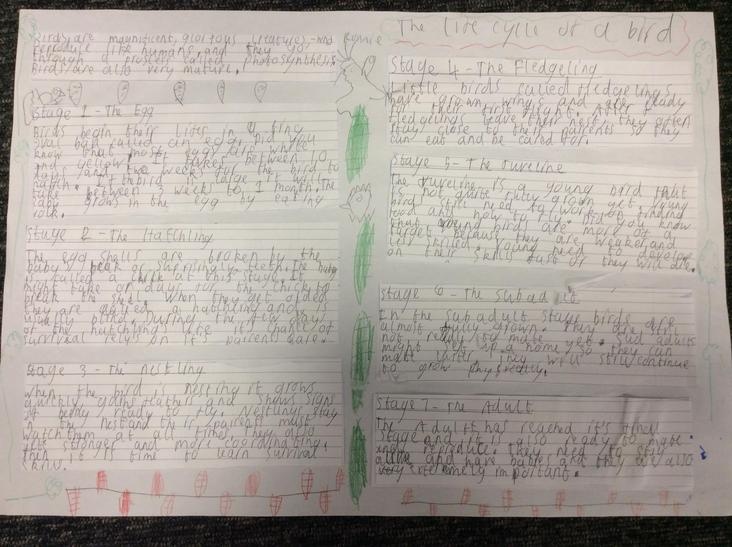 The life cycle of a bird
Birds are magnificent, glorious creatures, who
reproduce like humans, and they go
through a process called photosynthesis
Birds are also very mature.
Stage 1 - The Egg
Birds begin their lives in a tiny
oval ball called an egg. Did you
know that most eggs are white
and yellow. It takes between 10
days and two weeks for the bird to
hatch. If the bird is large it will
take between 3 weeks to 1 month. The
baby grows in the egg by eating
Stage 2 - The Hatchling
The egg shells are broken by the
baby's beak or
is called a chick at this stage. It
might take days for the chick to
break the shell. When they get older
they are called a hatchling and
bird. During the few days
of the hatchlings life it's chance of
survival relys on it's parents care.
Stage 3 - The nestling
When the bird is nesting it grows
quickly grows feathers and shows signs
of being ready to fly. Nestlings stay
in the nest and their parents must
watch them at all times. They also
get stronger and more
then it is time to learn survival
Stage 4 - The Fledgeling
Little birds called fledgelings
have grown wings and are ready
for their first flight. After
fledgelings leave their nest, they often
stay close to their parents so they
can eat and be cared for.
Stage 5 -
The is a young bird that
is not quite fully grown yet. Young
bird still need to work on finding
food and how to fly. Did you know
that young birds are more of a
target because they are weaker and
less skilled. Young need to develop
on their skills fast or they will die.
Stage 6 - The Subadult
In the subadult stage birds are
almost fully grown. They are still
not ready to mate yet. Sub adults
might get a home yet so they can
mate later. They will still continue
to grow physically.
Stage 7 - The Adult
The Adult has reached it's final
stage and it is also ready to mate
reproduce. They need to stay
alive and have babies and they are also
very extremely important.